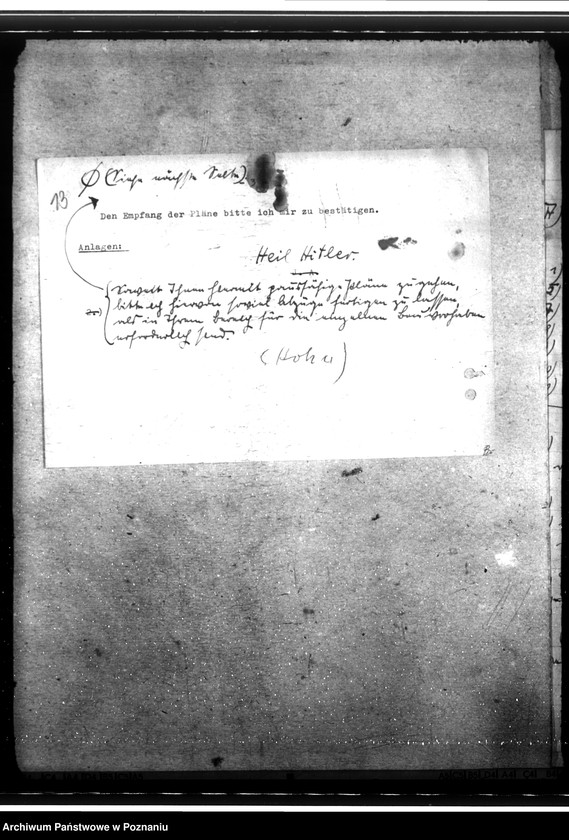 13
Ø (Siehe nächste Seite)
Den Empfang der Pläne bitte ich mir zu bestätigen.
Anlagen:
Heil Hitler.
Soweit Ihnen hiermit pausfähige Pläne zugehen,
bitte ich hiervon soviel Abzüge fertigen zu lassen,
als in Ihrem Bereich für die einzelnen Bauvorhaben
erforderlich sind.
(Hohn)
Archiwum Państwowe w Poznaniu